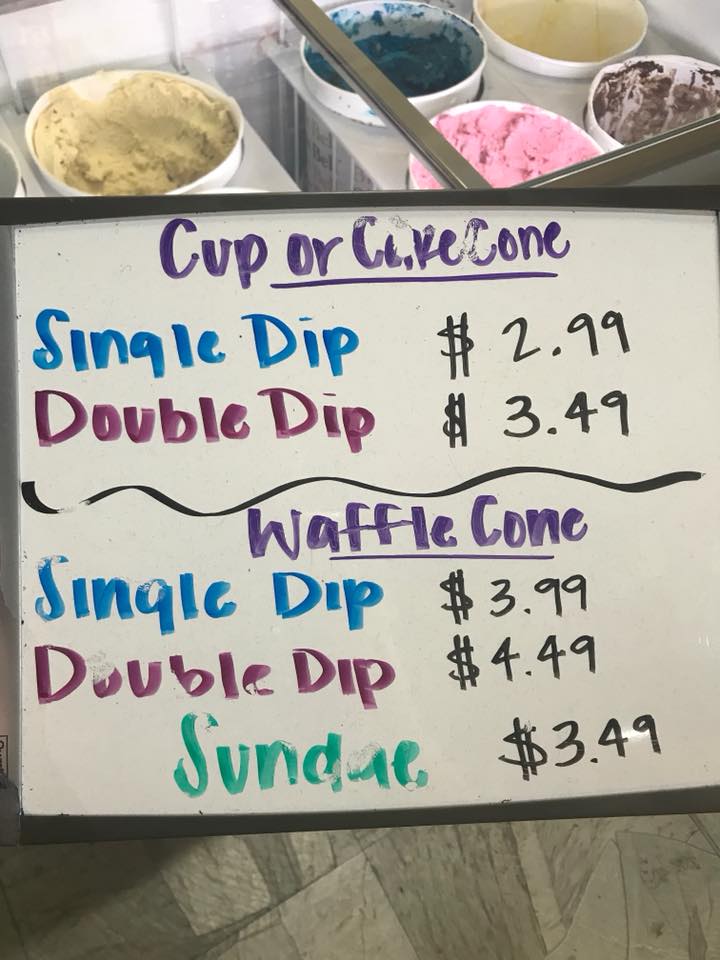 Cup or Cake Cone
Single Dip $ 2.99
Double Dip $ 3.49
Waffle Cone
Single Dip $ 3.99
Double Dip $ 4.49
Sundae $3.49